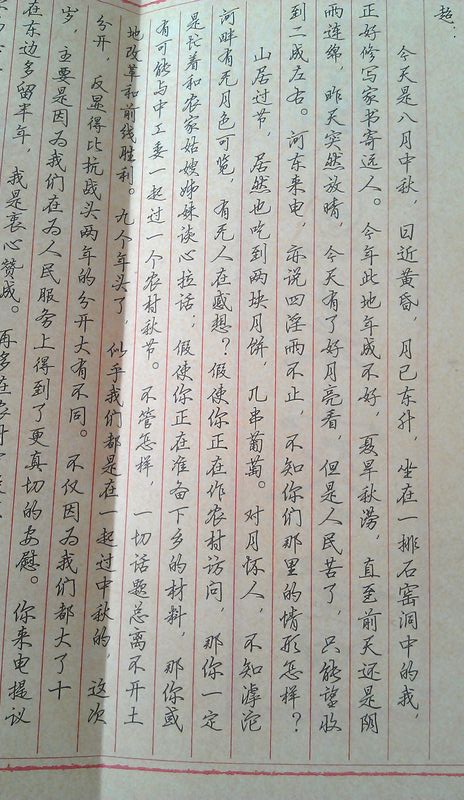 超：
今天是八月中秋，日近黄昏，月已东升，坐在一排石窑洞中的我，
正好修写家书寄远人。今年此地年成不好，夏旱秋涝 直至前天还是阴
雨连绵，昨天突然放晴，今天有了好月亮看，但是人民苦了，只能望收
到二成左右。河东来电，亦说四淫雨不止，不知你们那里的情形怎样？
山居过节，居然也吃到两块月饼，几串葡萄。对月怀人，不知滹沱
河畔有无月色可览，有无人在感想？假使你正在作农村访问 那你一定
是忙着和农家姑嫂姊妹谈心拉话；假使你正在准备下乡的材料，那你或
有可能与中工委一起过一个农村秋节。不管怎样 一切话题总离不开土
地改革和前线胜利。九个年头了，似乎我们都是在一起过中秋的，这次
分开，反显得比抗战头两年的分开大有不同。不仅因为我们都大了十
岁，主要是因为我们在为人民服务上得到了更真切的安慰。你来电提议
在东边多留半年，我是衷心赞成。再多在农村